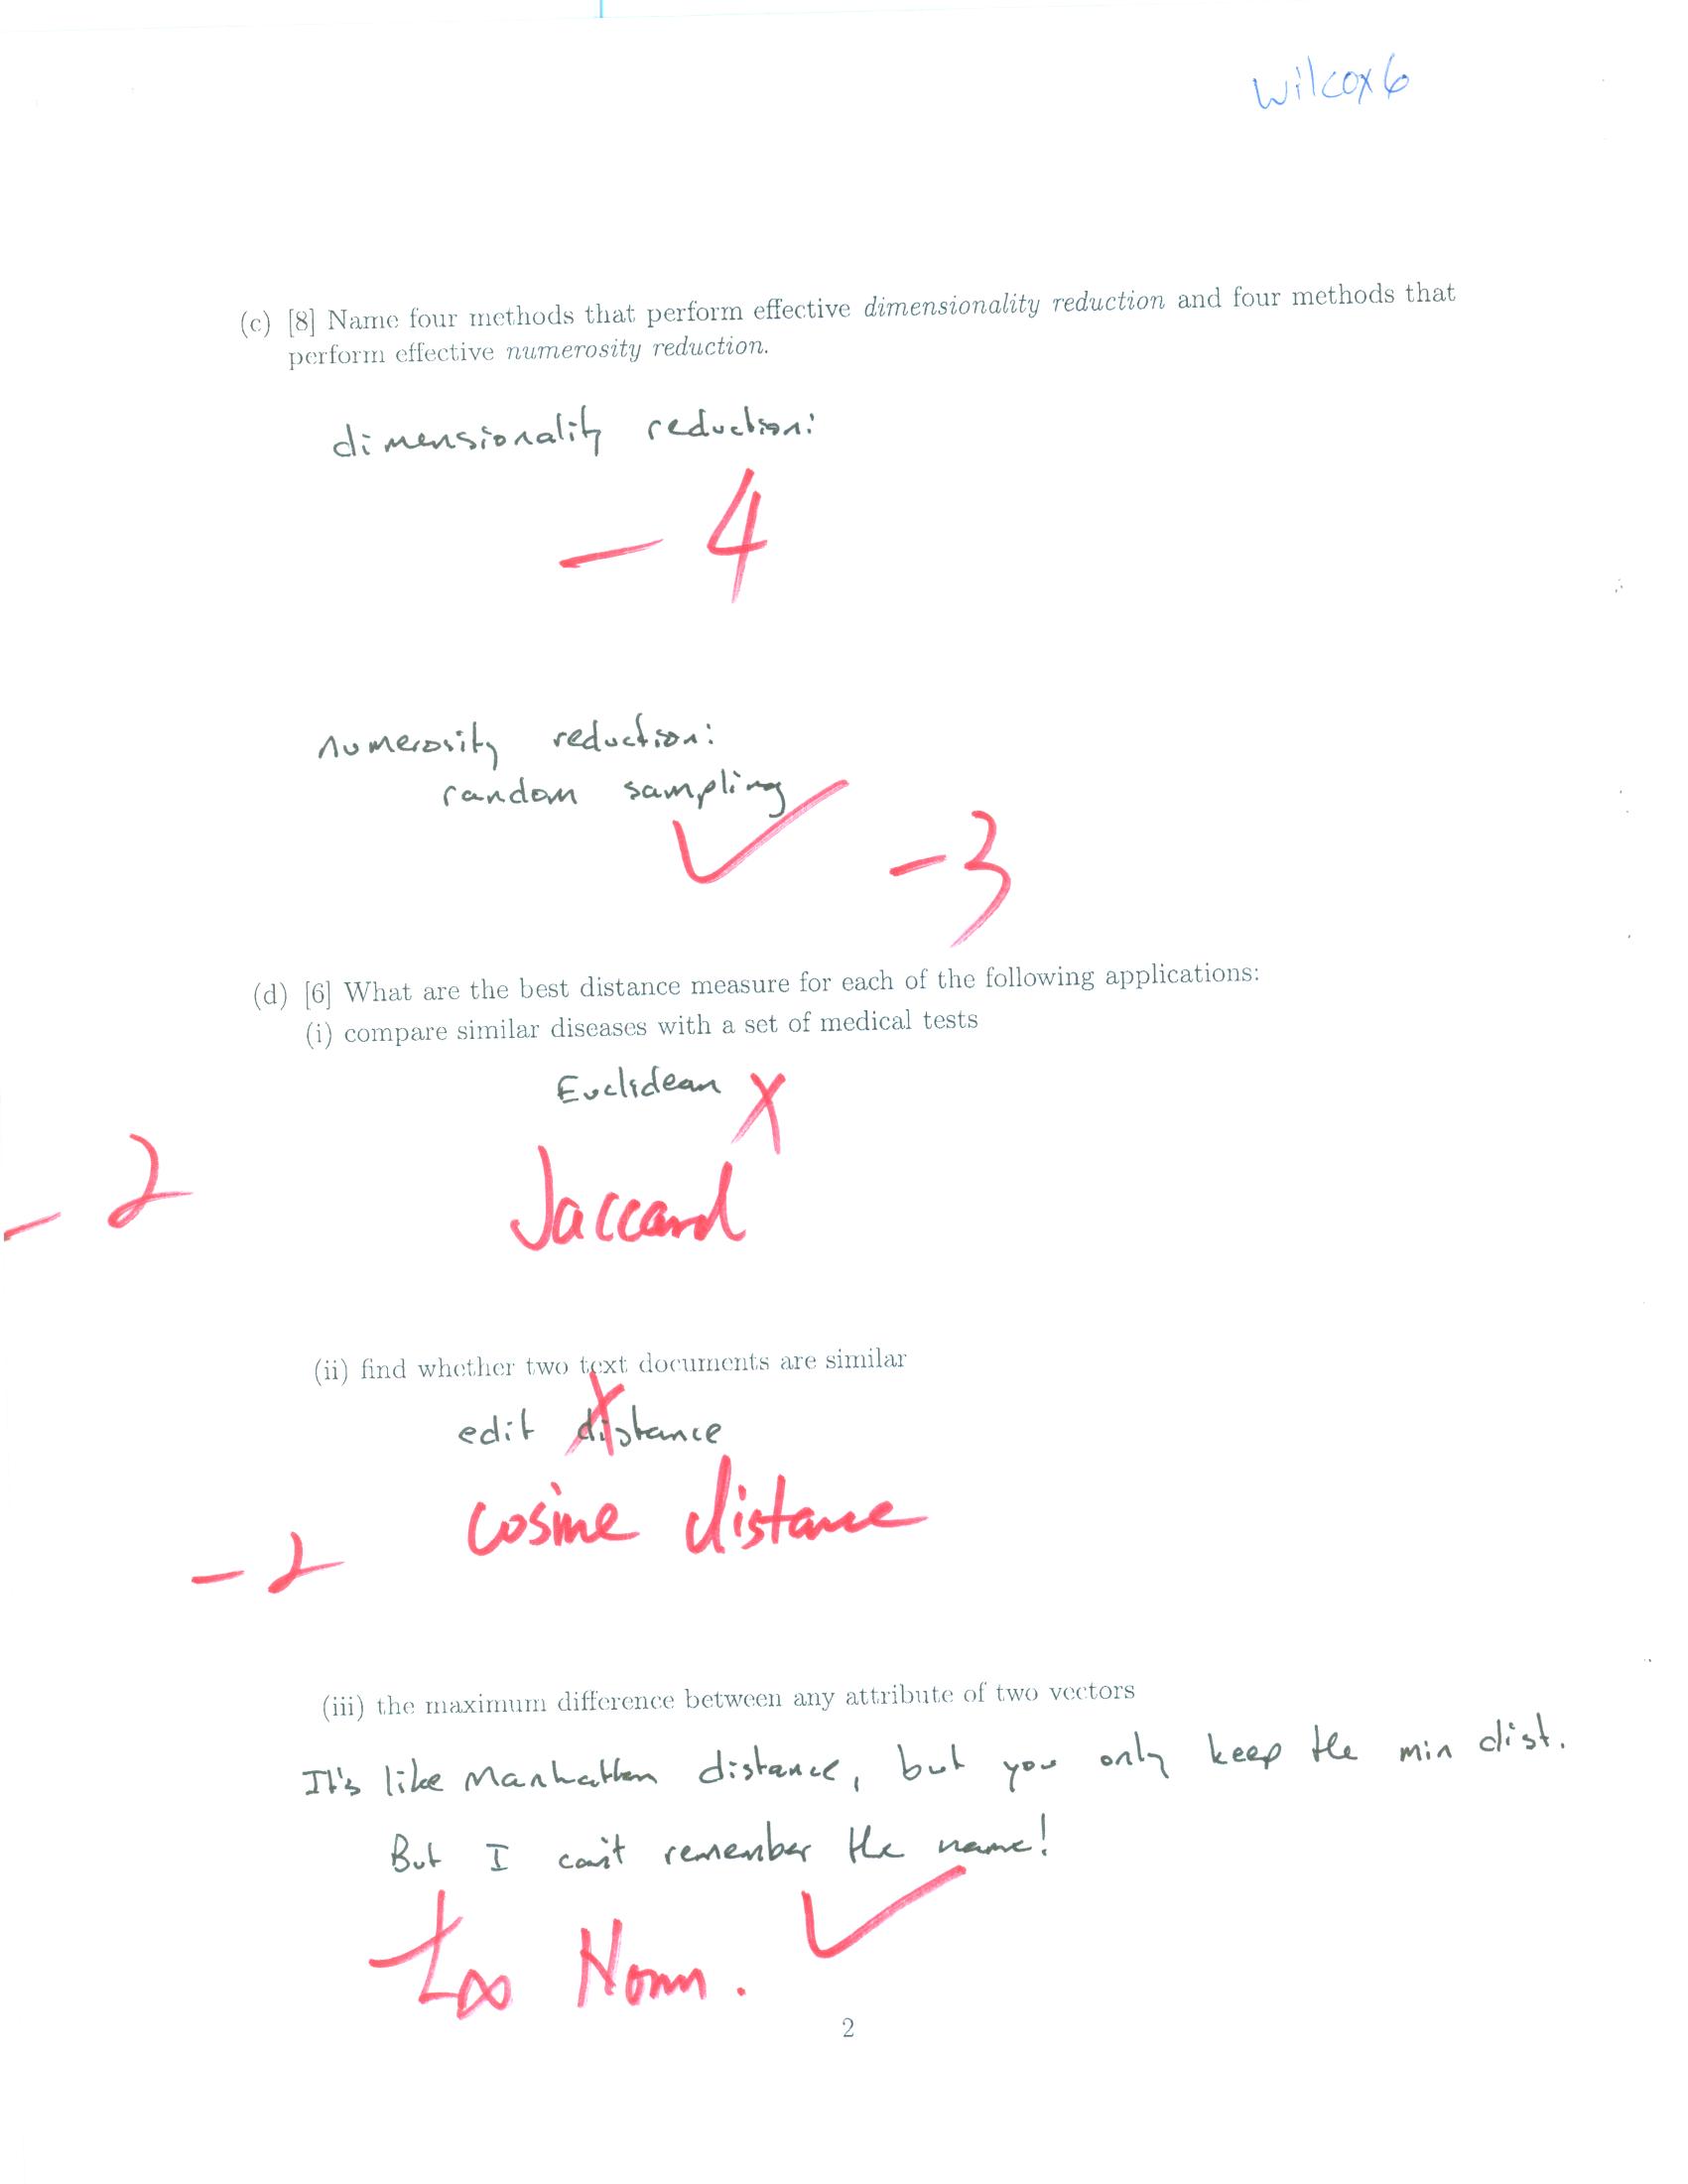 wilcox6
(c) [8] Name four methods that perform effective dimensionality reduction and four methods that
perform effective numerosity reduction.
dimensionality reduction:
- 4
numerosity reduction:
random sampling
-3
(d) [6] What are the best distance measure for each of the following applications:
(i) compare similar diseases with a set of medical tests
Euclidean X
- 2
Jaccard
(ii) find whether two text documents are similar
edit distance
cosine distance
- 2
(iii) the maximum difference between any attribute of two vectors
It's like Manhatten distance, but you only keep the min dist.
But I can't remember the name!
L∞ Norm.
2